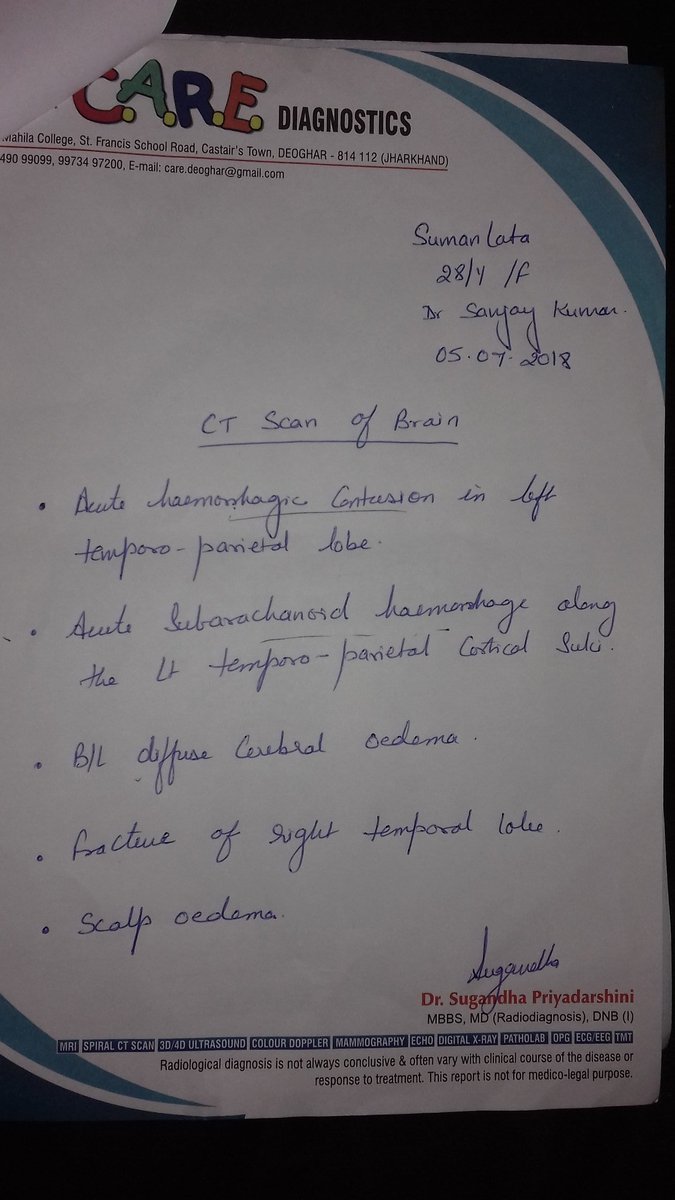 C.A.R.E. DIAGNOSTICS
Mahila College, St. Francis School Road, Castair's Town, DEOGHAR - 814 112 (JHARKHAND)
490 99099, 99734 97200, E-mail: care.deoghar@gmail.com
Suman Lata
28/Y /F
Dr Sanjay Kumar.
05.07.2018
CT Scan of Brain
• Acute haemorrhagic Contusion in left
temporo-parietal lobe.
• Acute Subarachanoid haemorrhage along
the Lt temporo-parietal Cortical Sulci.
• B/L diffuse Cerebral oedema.
• fracture of right temporal lobe.
• Scalp oedema.
Sugandha
Dr. Sugandha Priyadarshini
MBBS, MD (Radiodiagnosis), DNB (I)
MRI SPIRAL CT SCAN 3D/4D ULTRASOUND COLOUR DOPPLER MAMMOGRAPHY ECHO DIGITAL X-RAY PATHOLAB OPG ECG/EEG TMT
Radiological diagnosis is not always conclusive & often vary with clinical course of the disease or
response to treatment. This report is not for medico-legal purpose.